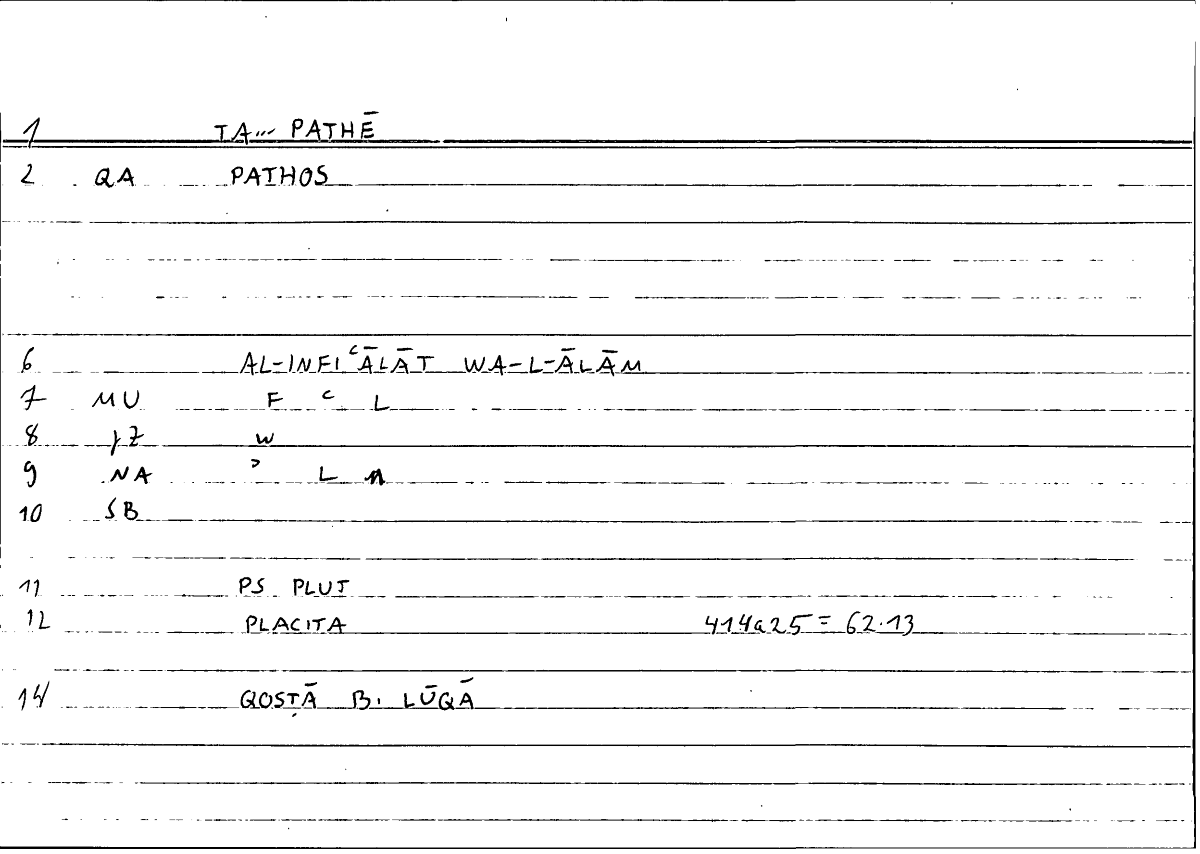 1 TA... PATHĒ
2 QA PATHOS
6 AL-INFIʿĀLĀT WA-L-ĀLĀM
7 MU F ʿ L
8 JZ W
9 NA ʾ L M
10 SB
11 PS PLUT
12 PLACITA 414a25 = 62.13
14 QOSṬĀ B. LŪQĀ